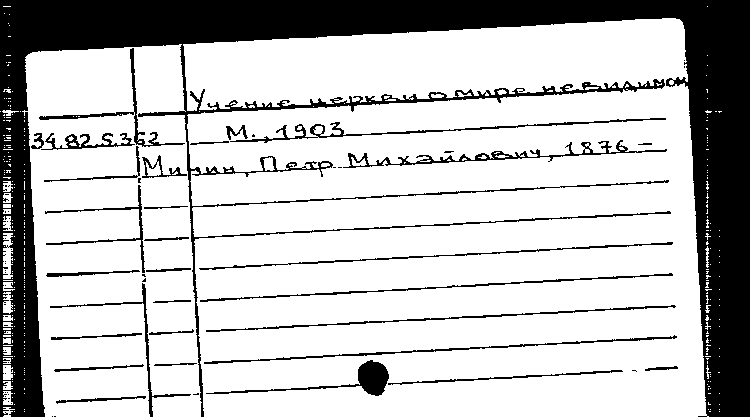 Учение церкви о мире невидимом
34.82.5.362 М., 1903
Минин, Петр Михайлович, 1876 –